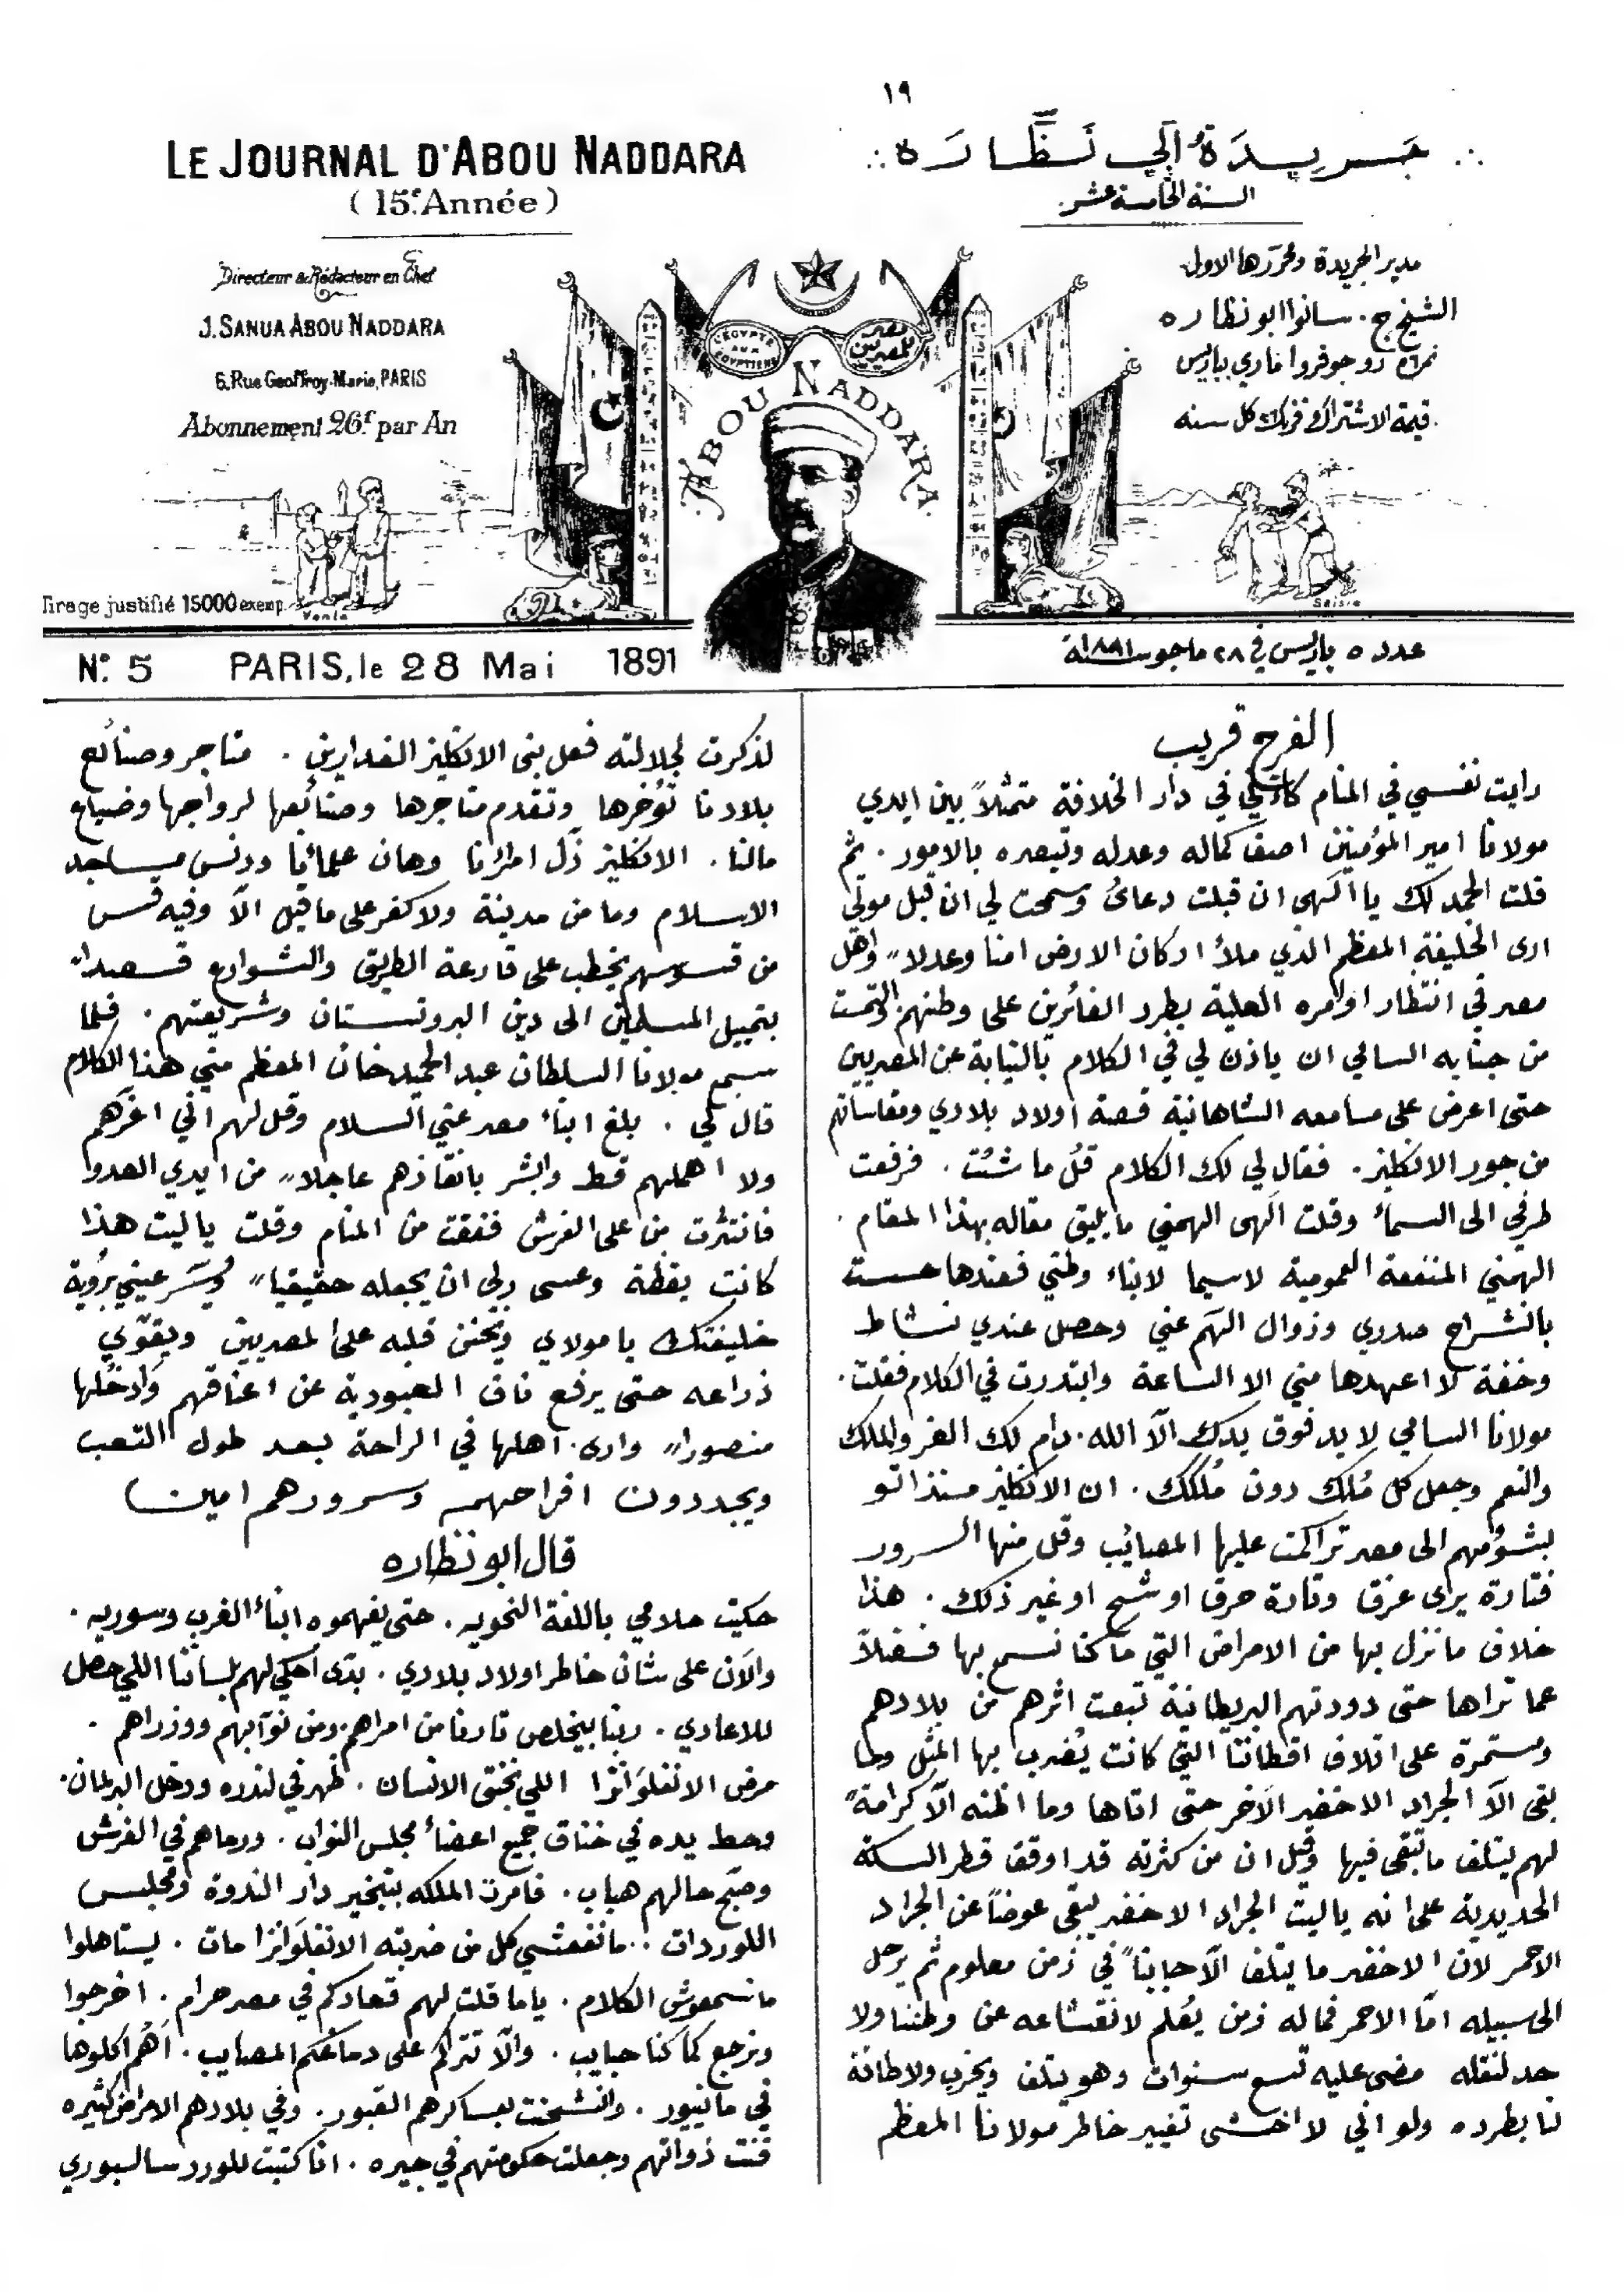 ١٩
LE JOURNAL D'ABOU NADDARA
(15e Année)
Directeur & Rédacteur en Chef
J. SANUA ABOU NADDARA
6, Rue Geoffroy-Marie, PARIS
Abonnement 26f par An
Tirage justifié 15000 exemp.
Vente
جَرِيدَةُ أَبِي نَظَّارَة
السنة الخامسة عشر
مدير الجريدة ومحررها الاول
الشيخ ج. سانوا ابو نظاره
نمرة ٦ رو جوفروا ماري بباريس
قيمة الاشتراك فرنك كل سنه
L'EGYPTE AUX EGYPTIENS
مصر للمصريين
ABOU NADDARA
Saisie
N° 5 PARIS, le 28 Mai 1891
عدد ٥ باريس في ٢٨ مايو سنة
الفرج قريب
رايت نفسي في المنام كأنني في دار الخلافة متمثلاً بين ايدي
مولانا امير المؤمنين اصف كماله وعدله وتبصره بالامور. ثم
قلت الحمد لك يا الهى ان قبلت دعائ وسمحت لي ان قبل موتي
ارى الخليفة المعظم الذي ملأ اركان الارض امنا وعدلا واهل
مصر في انتظار اوامره العلية بطرد الغائرين على وطنهم. التمست
من جنابه السامي ان ياذن لي في الكلام بالنيابة عن المصريين
حتى اعرض على مسامعه الشاهانية قصة اولاد بلادي ومقاساتهم
من جور الانكليز. فقال لي لك الكلام قُل ما شئت. فرفعت
طرفي الى السماء وقلت الهى الهمني ما يليق مقاله بهذا المقام.
الهمني المنفعة العمومية لاسيما لابناء وطني فعندها حسست
بانشراح صدري وزوال الهم عني وحصل عندي نشاط
وخفة لا اعهدها مني الا الساعة وابتدرت في الكلام فقلت.
مولانا السامي لا يد فوق يدك الّا الله. دام لك العز والملك
والنعم وجعل كل مُلك دون مُلكك. ان الانكليز منذ اتو
بشؤمهم الى مصر تراكمت عليها المصائب وقل منها السرور
فتارة يرى غرق وتارة حرق او شح او غير ذلك. هذا
خلاف ما نزل بها من الامراض التي ما كنا نسمع بها فضلاً
عما تراها حتى دودتهم البريطانية تبعت اثرهم من بلادهم
ومستمرة على اتلاف اقطاننا التي كانت يُضرب بها المثل وما
بقى الّا الجراد الاخضر الآخر حتى اتاها وما اظنه الّا كرامةً
لهم يتلف ما تبقى فيها وقيل ان من كثرته قد اوقف قطر السكة
الحديدية على انه يا ليت الجراد الاخضر يبقى عوضاً عن الجراد
الاحمر لان الاخضر ما يتلف الّا جانباً في زمن معلوم ثم يرحل
الى سبيله امّا الاحمر فما له زمن يُعلم لانقشاعه عن وطننا ولا
حد لثقله مضى عليه تسع سنوات وهو يتلف ويخرب ولا طاقة
لنا بطرده ولو اني لا اخشى تغيير خاطر مولانا المعظم
لذكرت لجلالته فعل بنى الانكليز الغدارين. متاجر وصنائع
بلادنا تؤخرها وتقدم متاجرها وصنائعها لرواجها وضياع
مالنا. الانكليز ذَل امرائنا وهان علمائنا ودنس مساجد
الاسلام وما من مدينة ولا كفر على ما قيل الّا وفيه قس
من قسوسهم يخطب على قارعة الطريق والشوارع قصدا
بتمييل المسلمين الى دين البروتستان وشريعتهم. فلما
سمع مولانا السلطان عبد الحميد خان المعظم مني هذا الكلام
قال لي. بلغ ابناء مصر عني السلام وقل لهم اني اعزهم
ولا اهملهم قط وابشر بانقاذهم عاجلا من ايدي العدوا
فانتثرت من على الفرش ففقت من المنام وقلت يا ليت هذا
كانت يقظة وعسى ربي ان يجعله حقيقيا ويُسر عيني برؤية
خليفتك يا مولاي ويحنن قلبه على المصريين ويقوّي
ذراعه حتى يرفع ناف العبودية عن اعناقهم وادخلها
منصورا وارى اهلها في الراحة بعد طول التعب
ويجددون افراحهم وسرورهم امين)
قال ابو نظاره
حكيت حلامي باللغة النحويه. حتى يفهموه ابناء الغرب وسوريه.
والآن على شان خاطر اولاد بلادي. بدّى أحكي لهم بلساننا اللي حصل
للاعادي. ربنا بيخلص تارنا من امراهم. ومن نوآبهم ووزراهم.
مرض الانفلوَانزا اللي يخنق الانسان. ظهر في لندره ودخل البرلمان.
وحط يده في خناق جميع اعضاء مجلس النواب. ورماهم في الفرش
وصبّح حالهم هباب. فامرت الملكه بتبخير دار الندوة ومجلس
اللوردات. ما نفعتشي كل من ضربته الانفلوَانزا مات. يستاهلوا
ما نسمعوش الكلام. ياما قلت لهم قعادكم في مصر حرام. اخرجوا
ونرجع كما كنا حبايب. والّا تتراكم على دماغكم المصايب. أهُم اكلوها
في مانيبور. وانشحنت بعساكرهم القبور. وفي بلادهم الامراض كثيره
فنت ذواتهم وجعلت حكومتهم في حيره. انا كتبت للورد سالسبوري